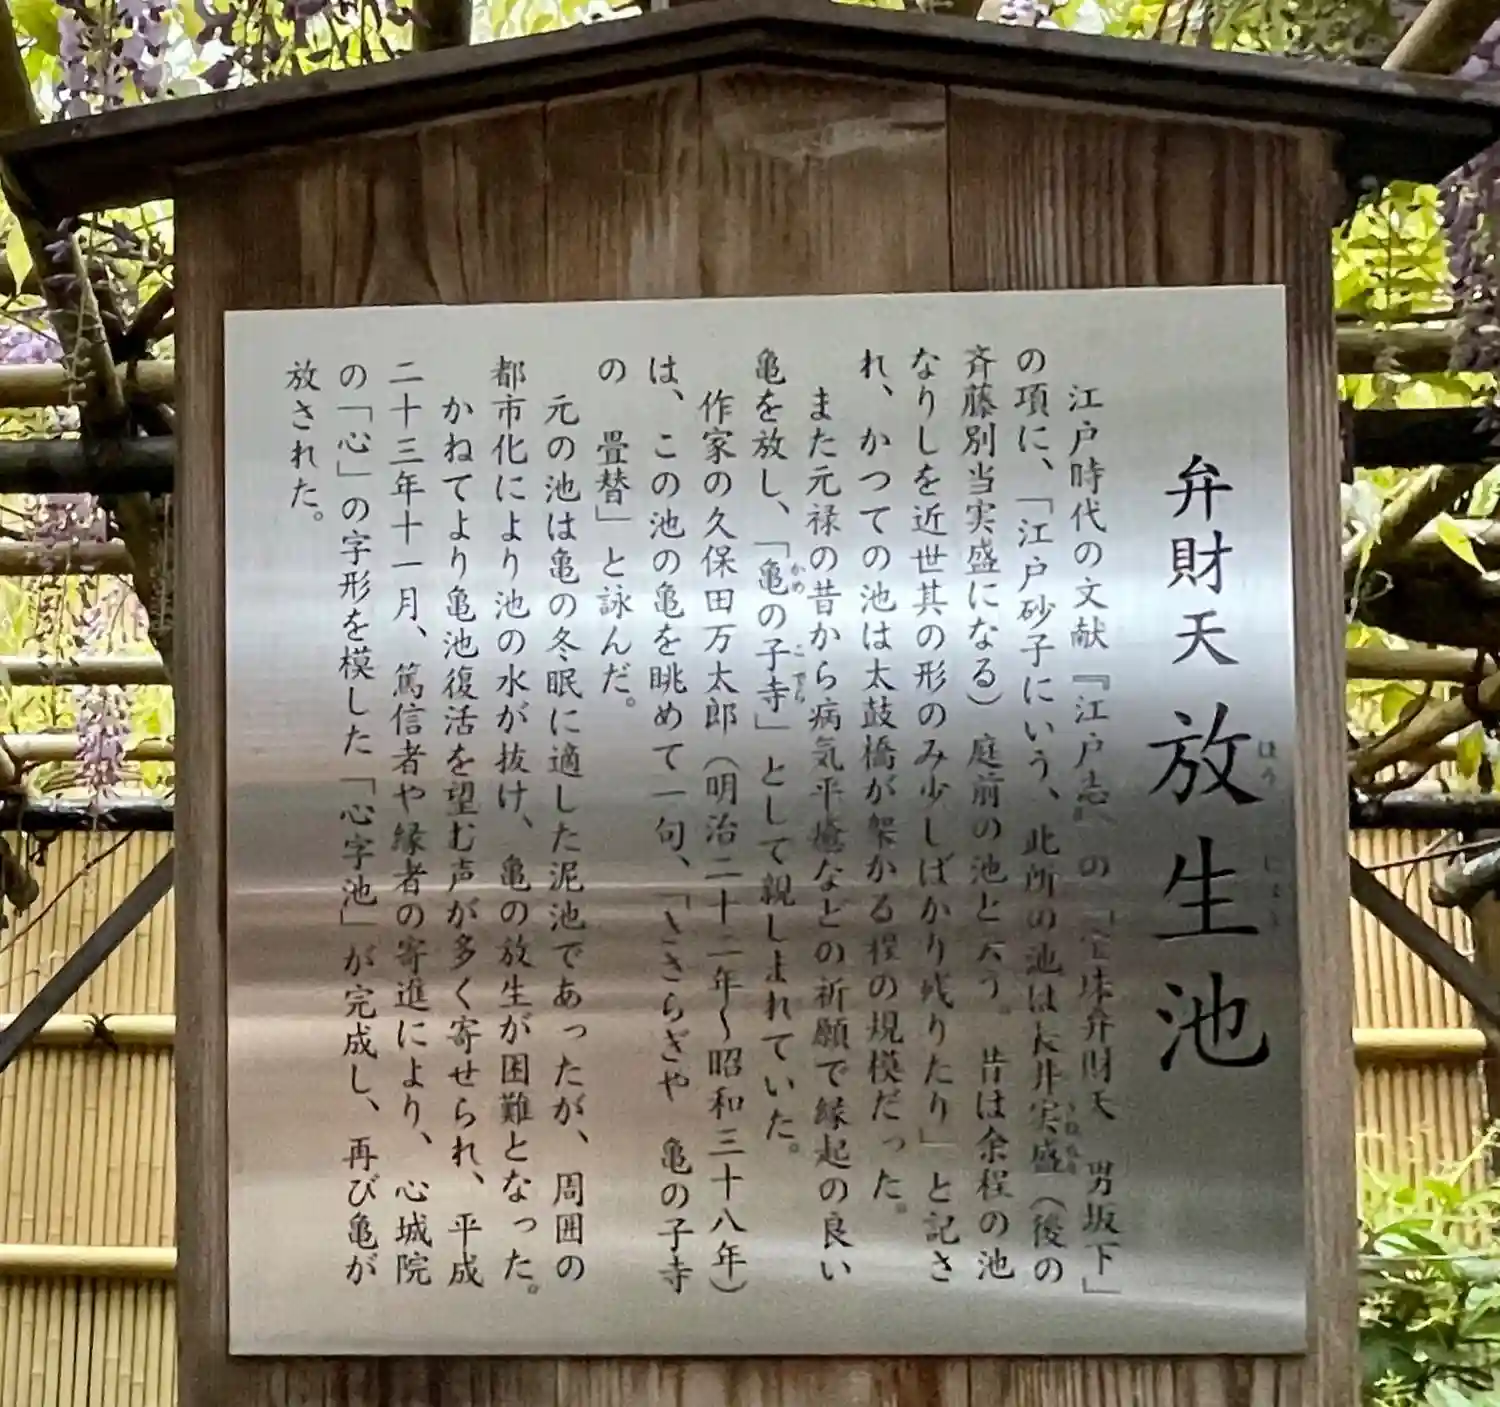 弁財天 放生池
江戸時代の文献『江戸志』の「宝珠弁財天 男坂下」
の項に、「江戸砂子にいう、此所の池は長井実盛（後の
斉藤別当実盛になる）庭前の池と云う。昔は余程の池
なりしを近世其の形のみ少しばかり残りたり」と記さ
れ、かつての池は太鼓橋が架かる程の規模だった。
また元禄の昔から病気平癒などの祈願で縁起の良い
亀を放し、「亀の子寺」として親しまれていた。
作家の久保田万太郎（明治二十二年〜昭和三十八年）
は、この池の亀を眺めて一句、「きさらぎや 亀の子寺
の 畳替」と詠んだ。
元の池は亀の冬眠に適した泥池であったが、周囲の
都市化により池の水が抜け、亀の放生が困難となった。
かねてより亀池復活を望む声が多く寄せられ、平成
二十三年十一月、篤信者や縁者の寄進により、心城院
の「心」の字形を模した「心字池」が完成し、再び亀が
放された。